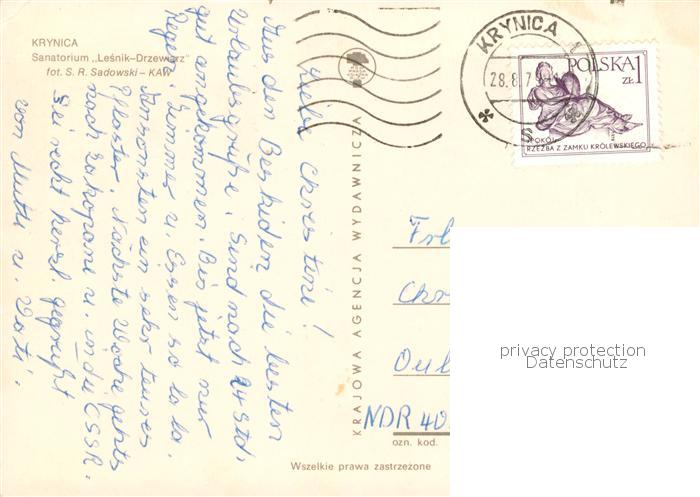 KRYNICA
Sanatorium „Leśnik-Drzewiarz"
fot. S. R. Sadowski – KAW
Liebe Christine!
Aus den Beskiden die besten
Urlaubsgrüße. Sind nach 24 Std.
gut angekommen. Bis jetzt nur
Regen. Zimmer u. Essen so la la.
Ansonsten ein sehr teures
Pflaster. Nächste Woche gehts
nach Zakopane u. in die CSSR.
Sei recht herzl. gegrüßt
von Mutti u. Vati.
KRAJOWA AGENCJA WYDAWNICZA
KRYNICA
28.8.79
POLSKA 1
ZŁ
SPOKÓJ
RZEŹBA Z ZAMKU KRÓLEWSKIEGO
Frl
Chr
Oul
NDR 40
ozn. kod.
Wszelkie prawa zastrzeżone
privacy protection
Datenschutz